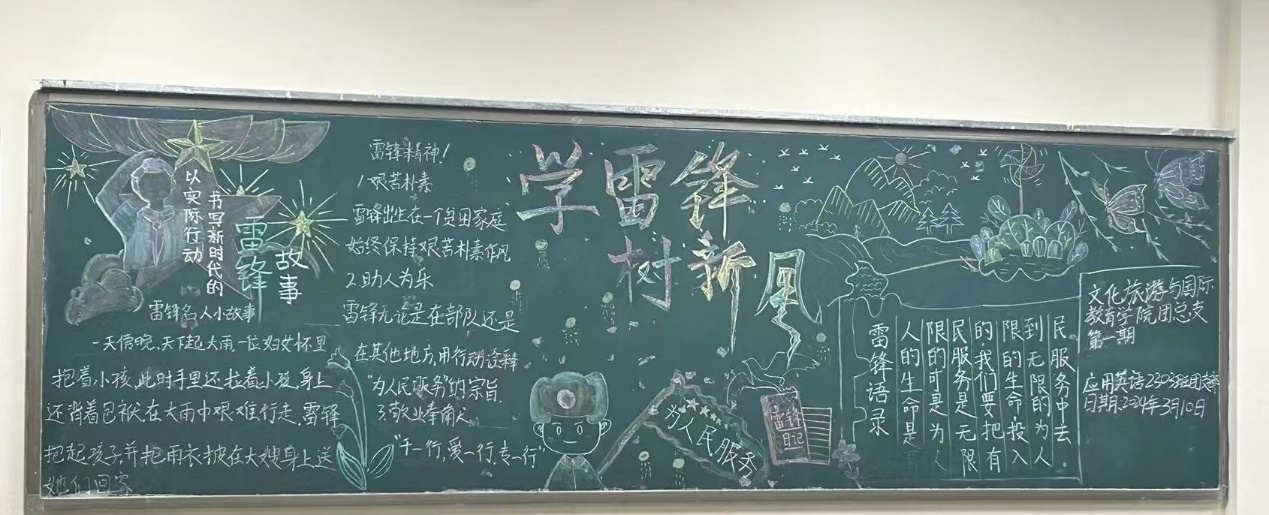 以实际行动
书写新时代的
雷锋
故事
雷锋名人小故事
一天傍晚,天下起大雨一位妇女怀里
抱着小孩,此时手里还拉着小孩,身上
还背着包袱在大雨中艰难行走,雷锋
抱起孩子,并把雨衣披在大嫂身上送
她们回家
雷锋精神!
1.艰苦朴素
雷锋出生在一个贫困家庭
始终保持艰苦朴素作风
2.助人为乐
雷锋无论是在部队还是
在其他地方,用行动诠释
"为人民服务"的宗旨
3.敬业奉献
"干一行,爱一行,专一行"
学雷锋
树新风
为人民服务
雷锋
日记
雷锋语录
人的生命是有
限的可是为人
民服务是无限
的我们要把有
限的生命投入
到无限的为人
民服务中去
文化旅游与国际
教育学院团总支
第一期
应用英语2303班团支部
日期:2024年3月10日